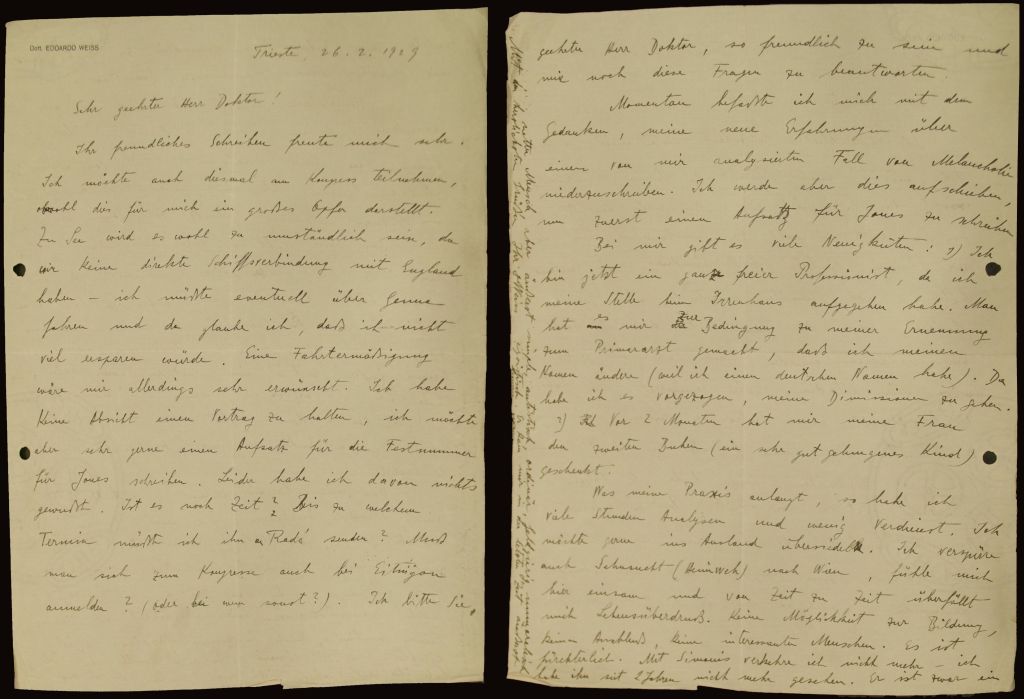 Dott. EDOARDO WEISS
Trieste, 26. 2. 1929
Sehr geehrter Herr Doktor!
Ihr freundliches Schreiben freute mich sehr.
Ich möchte auch diesmal am Kongress teilnehmen,
obwohl dies für mich ein großes Opfer darstellt.
Zu See wird es wohl zu umständlich sein, da
wir keine direkte Schiffsverbindung mit England
haben – ich müßte eventuell über Genua
fahren und da glaube ich, daß ich nicht
viel ersparen würde. Eine Fahrtermäßigung
wäre mir allerdings sehr erwünscht. Ich habe
keine Absicht einen Vortrag zu halten, ich möchte
aber sehr gerne einen Aufsatz für die Festnummer
für Jones schreiben. Leider habe ich davon nichts
gewußt. Ist es noch Zeit? Bis zu welchem
Termin müßte ich ihn an Radó senden? Muß
man sich zum Kongresse auch bei Eitingon
anmelden? (oder bei wem sonst?). Ich bitte Sie,
geehrter Herr Doktor, so freundlich zu sein und
mir noch diese Fragen zu beantworten.
Momentan befaßte ich mich mit dem
Gedanken, meine neue Erfahrungen über
einen von mir analysierten Fall von Melancholie
niederzuschreiben. Ich werde aber dies aufschieben,
um zuerst einen Aufsatz für Jones zu schreiben
Bei mir gibt es viele Neuigkeiten: 1) Ich
bin jetzt ein ganz freier Professionist, da ich
meine Stelle beim Irrenhaus aufgegeben habe. Man
hat es mir zur Bedingung zu meiner Ernennung
zum Primararzt gemacht, daß ich meinen
Namen ändere (weil ich einen deutschen Namen habe). Da
habe ich es vorgezogen, meine Dimissionen zu geben.
2) Vor 2 Monaten hat mir meine Frau
den zweiten Buben (ein sehr gut gelungenes Kind)
geschenkt.
Was meine Praxis anlangt, so habe ich
viele Stunden Analysen und wenig Verdienst. Ich
möchte gerne ins Ausland übersiedeln. Ich verspüre
auch Sehnsucht (Heimweh) nach Wien, fühle mich
hier einsam und von Zeit zu Zeit überfällt
mich Lebensüberdruß. Keine Möglichkeit zur Bildung,
keinen Anschluß, keine interessanten Menschen. Es ist
fürchterlich. Mit Simonis verkehre ich nicht mehr – ich
habe ihn seit 2 Jahren nicht mehr gesehen. Er ist zwar ein
netter Mensch aber
Mit den herzlichsten Grüßen Ihr